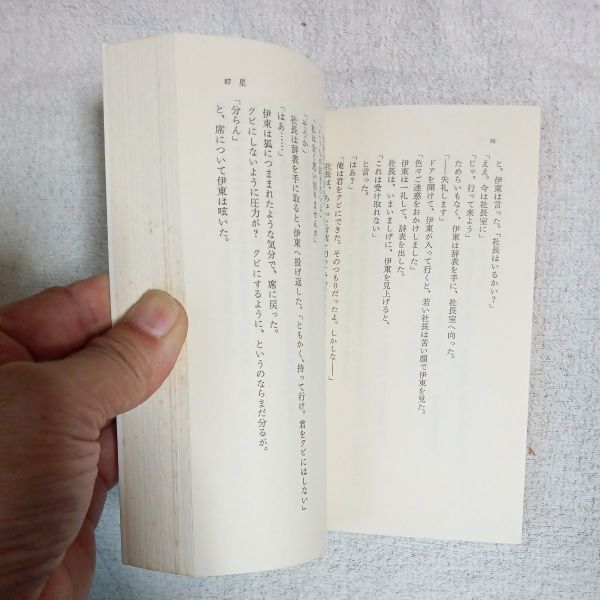 86
と、伊東は言った。「社長はいるかい？」
「ええ。今は社長室に」
「じゃ、行って来よう」
ためらいもなく、伊東は辞表を手に、社長室へ向った。
「——失礼します」
ドアを開けて、伊東が入って行くと、若い社長は苦い顔で伊東を見た。
「色々ご迷惑をおかけしました」
伊東は一礼して、辞表を出した。
社長は、いまいましげに、伊東を見上げると、
「これは受け取れない」
と言った。
「はあ？」
「俺は君をクビにできた。そのつもりだったよ。しかしな——」
社長は、ちょっと言葉を切って、
87 星
「そうか」
社長は辞表を手に取ると、伊東へ投げ返した。「ともかく、持って行け。君をクビにはしない」
「はあ……」
伊東は狐につままれたような気分で、席に戻った。
クビにしないように圧力が？　クビにするように、というのならまだ分るが。
「分らん」
と、席について伊東は呟いた。